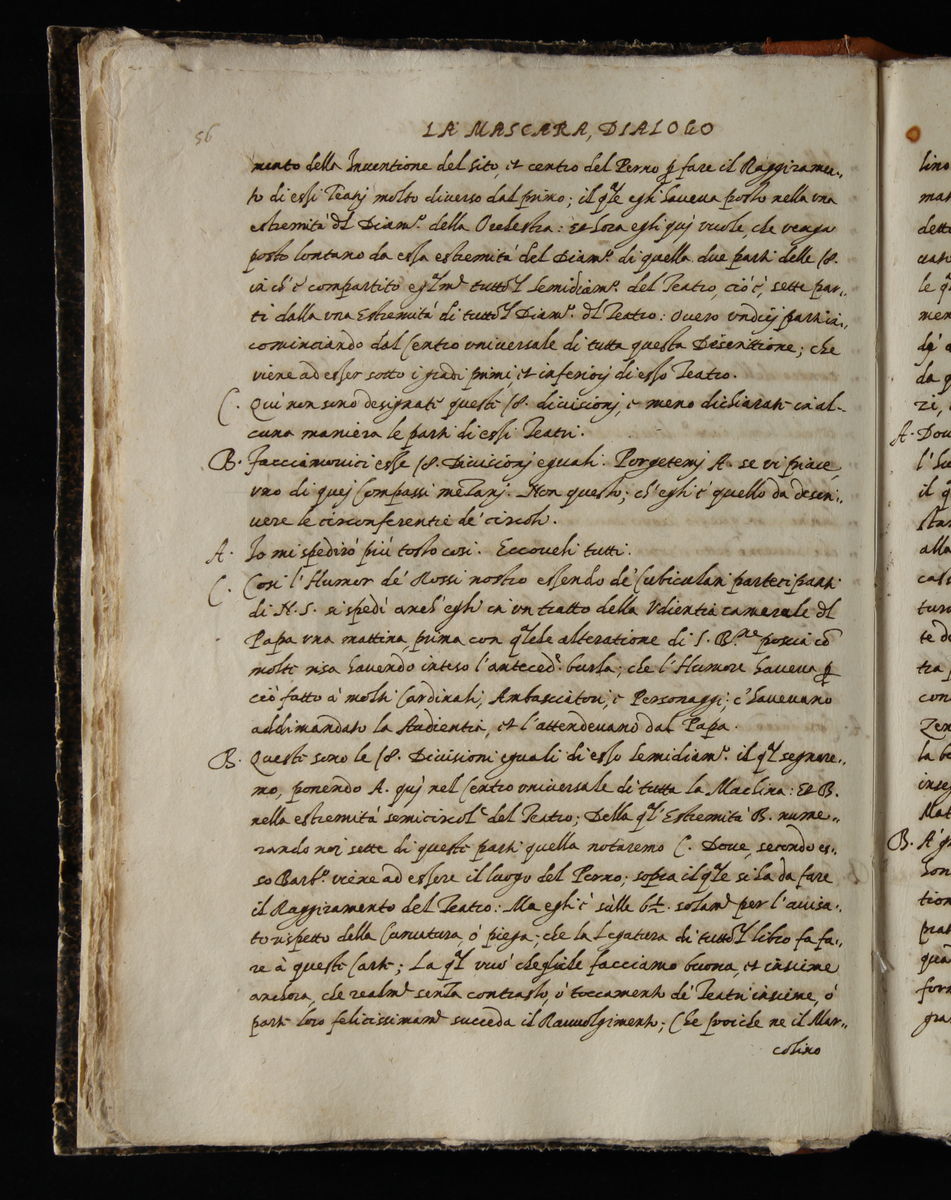 56
LA MASCARA, DIALOGO
mento della Inventione del sito, et centro del Perno p fare il Raggiramen-
to di essi Teatrj molto diverso dal primo; il qle egli haveva posto nella una
estremità dl Diamo. della Orchestra: Et hora egli quj vuole, che venga
posto lontano da essa estremità del Diamo. di quella due parti delle 18.
in ch'è compartito eglme tuttol semidiamo. del Teatro, cioè, sette par-
ti dalla una Estremità di tuttol Diamo. dl Teatro: Overo undicj parti in-
cominciando dal Centro universale di tutta questa Descrittione; che
viene ad esser sotto i gradi primi, et inferiorj di esso Teatro.
C. Qui non sono designate queste 18. divisionj, e meno dichiarate in al-
cuna maniera le parti di essi Teatri.
B. Facciamovici esse 18. Divisionj eguali. Porgetemj A. se vi piace,
uno di quej Compassi mezanj. Non questo; ch'egli è quello da descri-
vere le circonferentie de' circoli.
A. Io mi spedirò più tosto così. Eccoveli tutti.
C. Così l'Humor de' Rossi nostro essendo de' Cubiculari participanti
di N. S. si spedì anch'egli in un tratto della Udientia camerale dl
Papa una mattina, prima con qlche alteratione di S. Bne poscia cō
molte risa havendo inteso l'anteced. burla; che l'Humore haveva p
ciò fatto à molti Cardinali, Ambasciatori, e Personaggi; c'havevano
addimandato la Audientia, et l'attendevano dal Papa.
B. Queste sono le 18. Divisioni eguali di esso semidiamo. il ql segnare-
mo, ponendo A. quj nel Centro universale di tutta la Machina: Et B.
nella estremità semicircole del Teatro; Della ql' Estremità B. nume-
rando noi sette di queste parti quella notaremo C. Dove, secondo es-
so Barbo. viene ad essere il luogo del Perno; sopra il qle si ha da fare
il Raggiramento del Teatro: Ma egli è sulle 6½. solame per l'avvisa-
to rispetto della Curvatura, ò piega; che la Legatura di tuttol libro fa fa-
re à queste Carte; La ql vuò che gliele facciamo buona, et insieme
anchora, che realme senza contrasto, ò toccamento de' Teatri insieme, ò
parti loro felicissimame succeda il Ravvolgimento; Che poiche ne il Mar-
colino